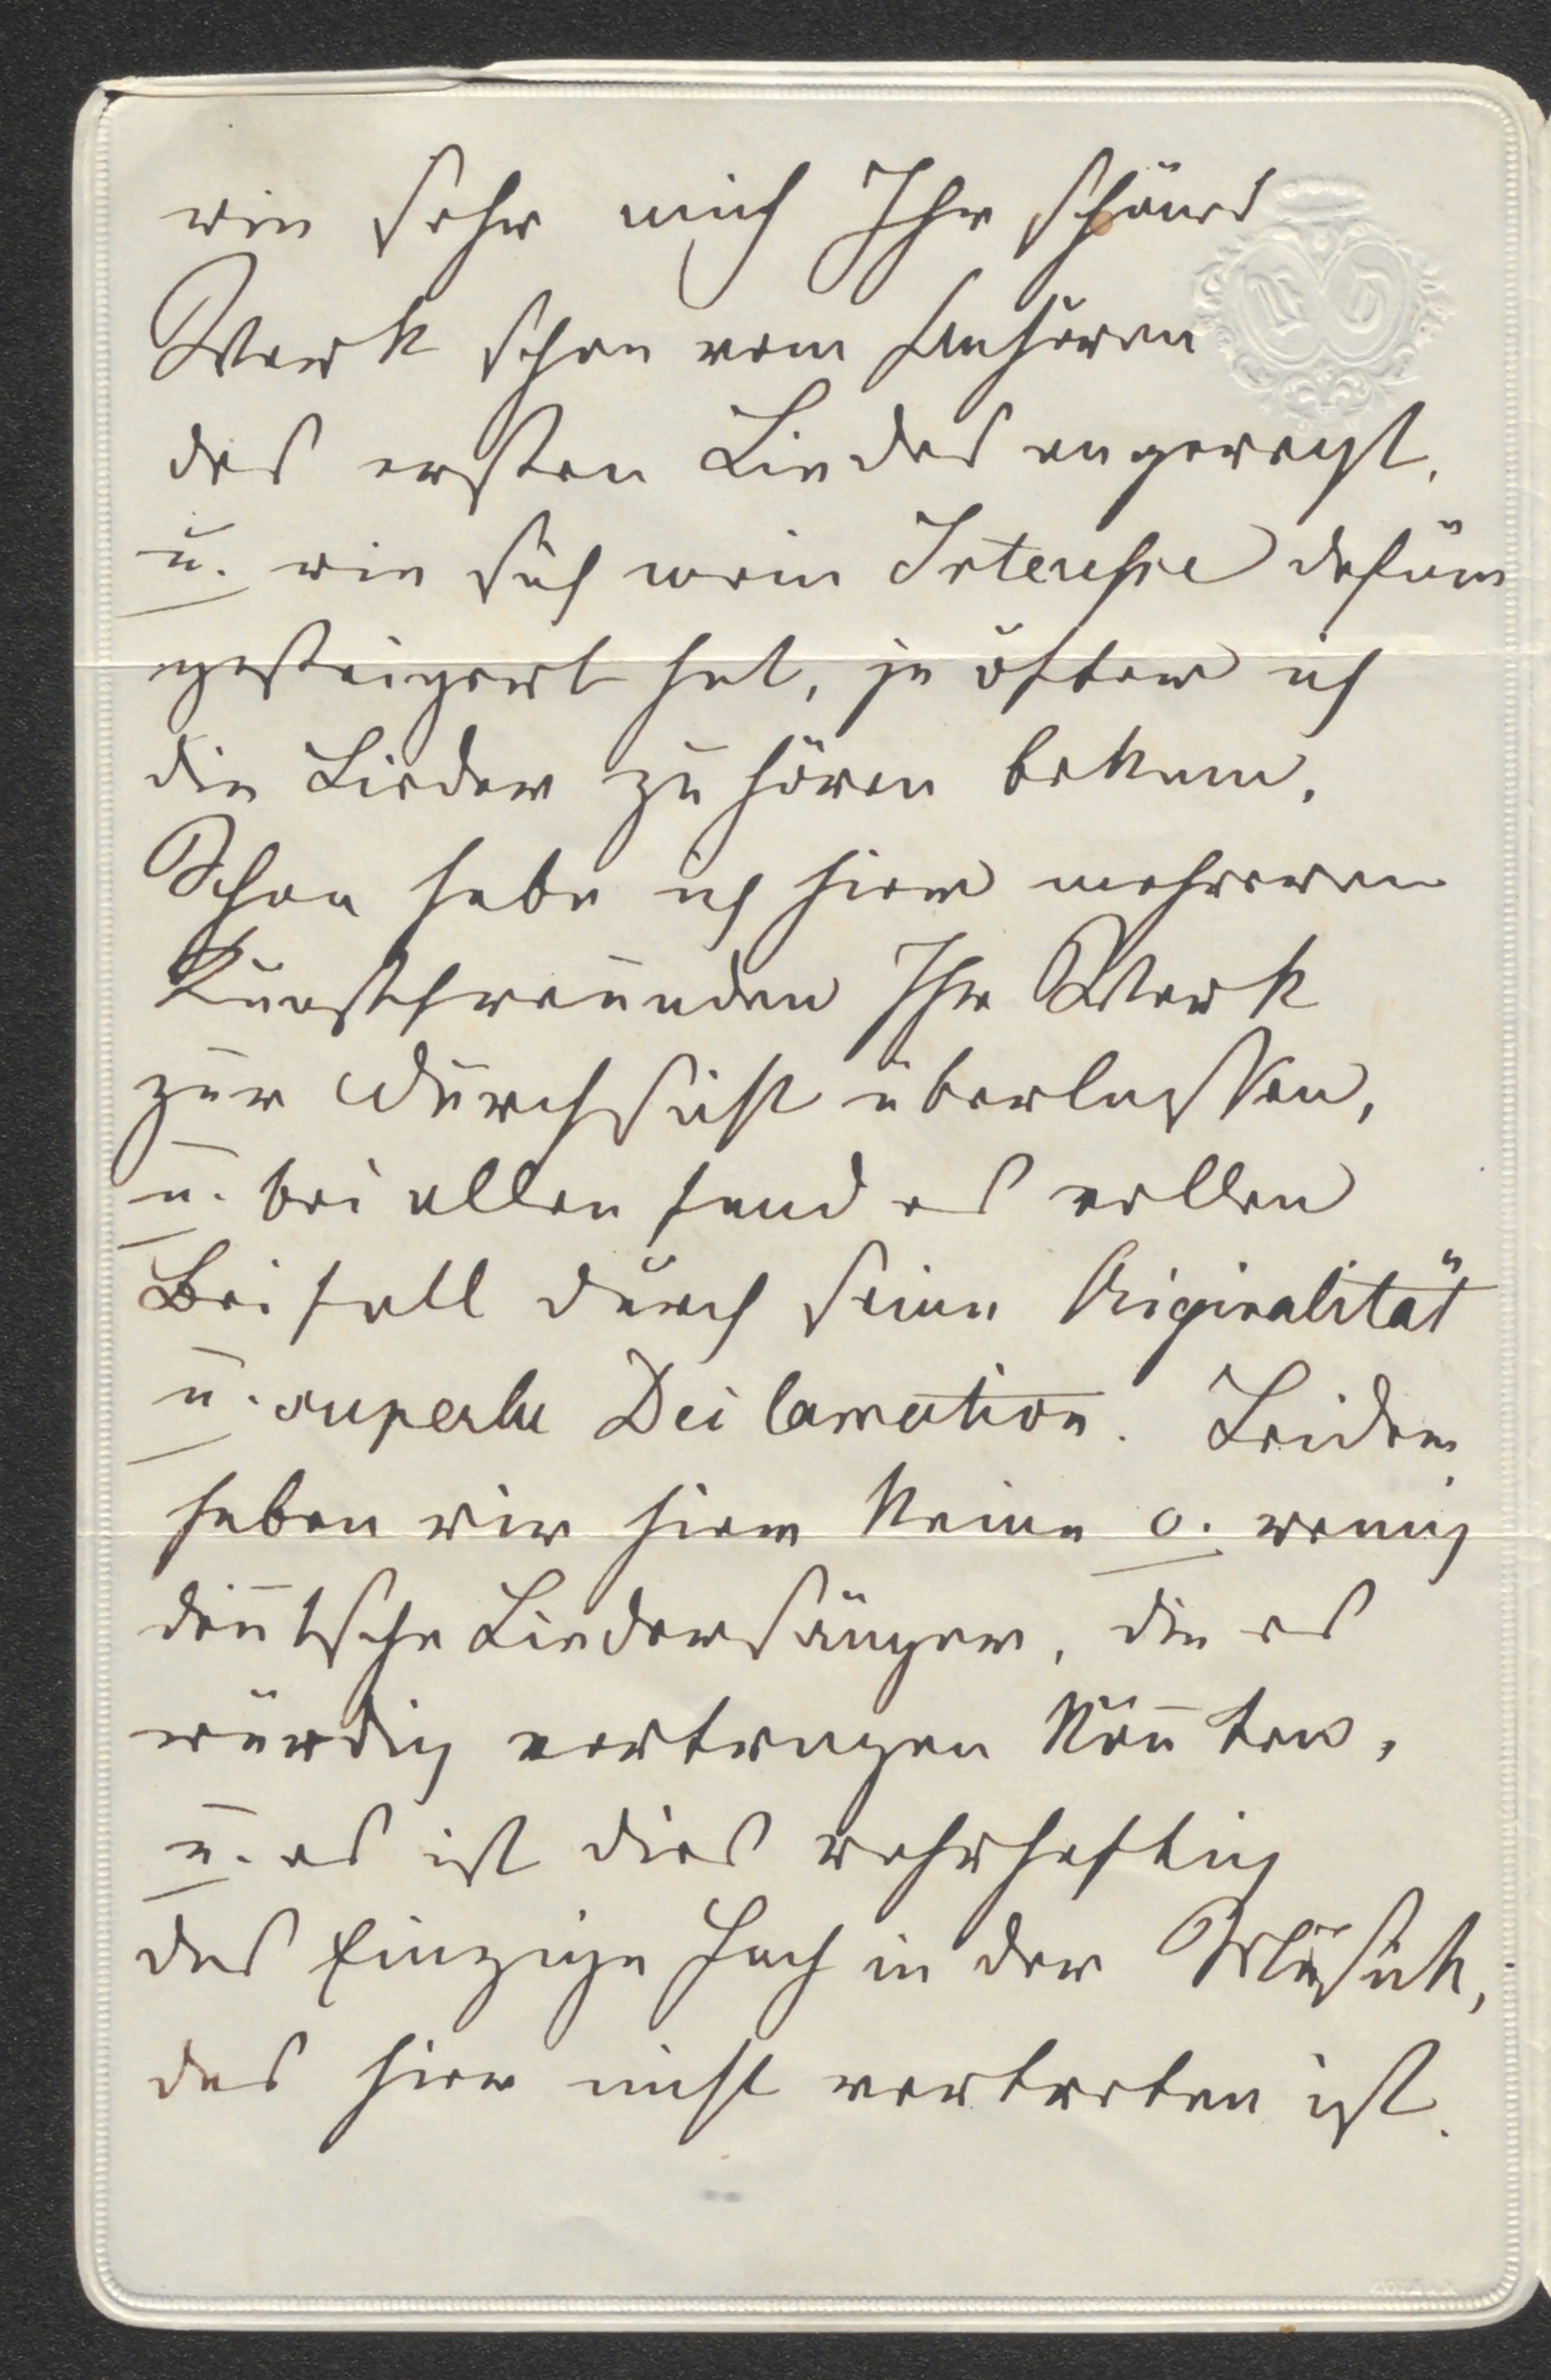 wie sehr mich Ihr schönes
Werk schon vom Anhören
des ersten Liedes angeregt,
u. wie sich mein Interesse dafür
gesteigert hat, je öfter ich
die Lieder zu hören bekam.
Schon habe ich hier mehreren
Kunstfreunden Ihr Werk
zur Durchsicht überlassen,
u. bei allen fand es vollen
Beifall durch seine Originalität
u. superbe Declamation. Leider
haben wir hier keine o. wenig
deutsche Liedersänger, die es
würdig vortragen könnten,
u. es ist dies wahrhaftig
das Einzige Fach in der Musik,
das hier nicht vertreten ist.